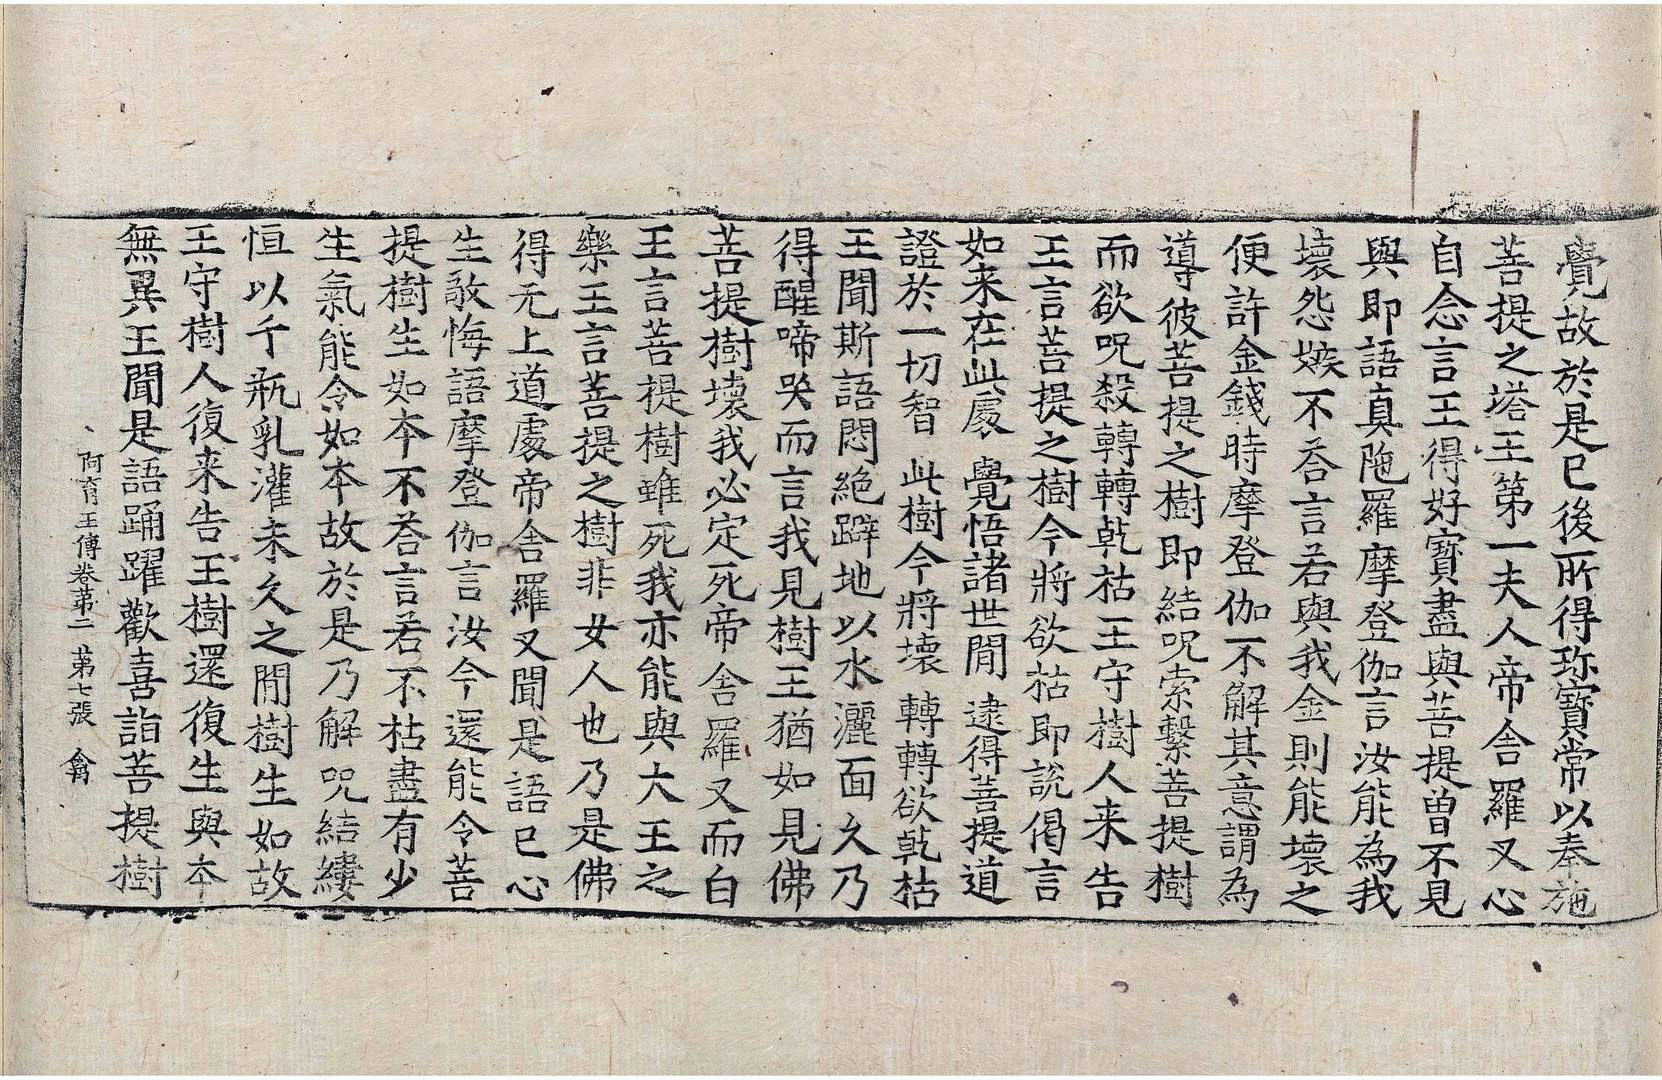 覺故於是已後所得珎寳常以奉施
菩提之塔王第一夫人帝舍羅叉心
自念言王得好寳盡與菩提曽不見
與即語真陁羅摩登伽言汝能為我
壞怨嫉不荅言若與我金則能壞之
便許金錢時摩登伽不解其意謂為
導彼菩提之樹即結呪索繫菩提樹
而欲呪殺轉轉乾枯王守樹人来告
王言菩提之樹今將欲枯即說偈言
如来在此處　覺悟諸世閒　逮得菩提道
證於一切智　此樹今將壞　轉轉欲乾枯
王聞斯語悶絶躃地以水灑面久乃
得醒啼哭而言我見樹王猶如見佛
菩提樹壞我必定死帝舍羅叉而白
王言菩提樹雖死我亦能與大王之
樂王言菩提之樹非女人也乃是佛
得无上道處帝舍羅叉聞是語已心
生敬悔語摩登伽言汝今還能令菩
提樹生如夲不荅言若不枯盡有少
生氣能令如本故於是乃解呪結縷
恒以千瓶乳灌未久之閒樹生如故
王守樹人復来告王樹還復生與夲
無異王聞是語踊躍歡喜詣菩提樹
阿育王傳卷第二　第七張　禽